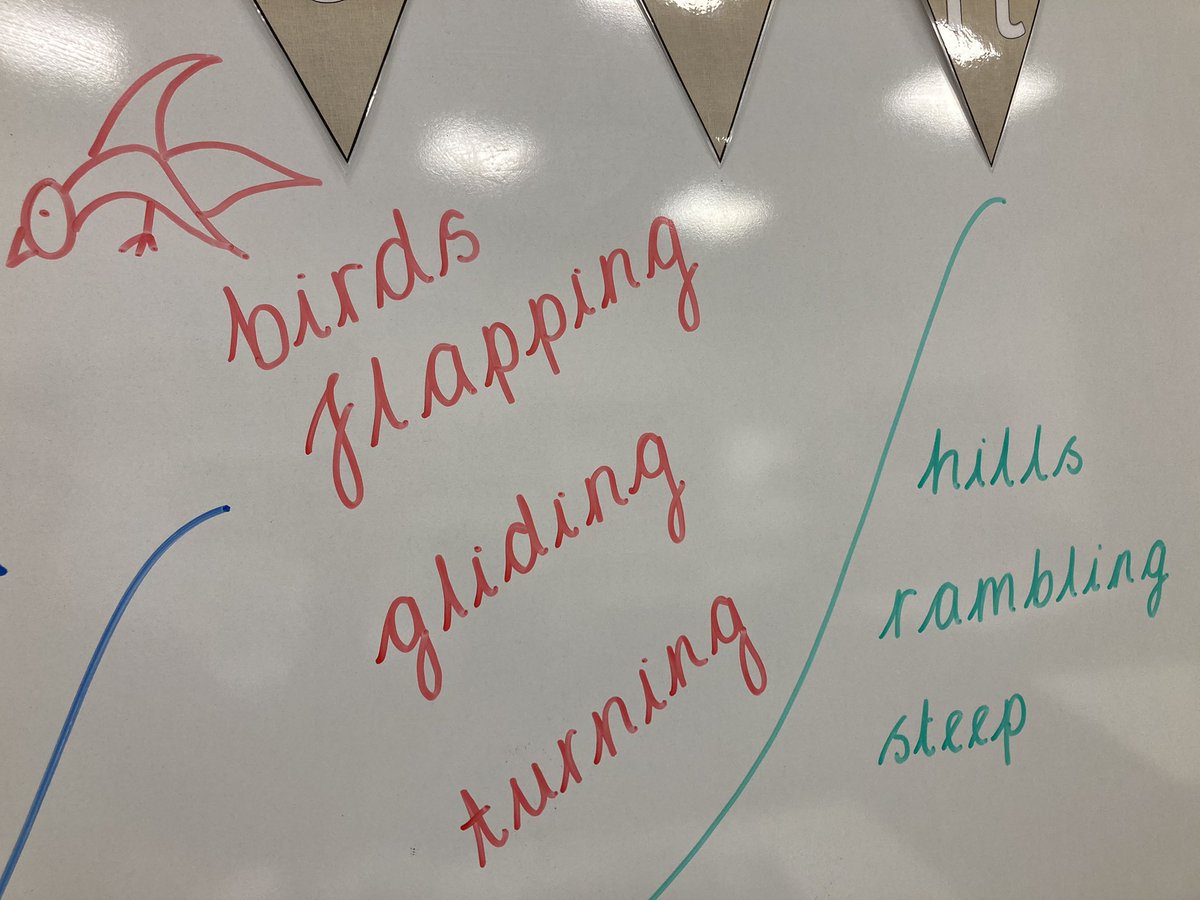 birds
flapping
gliding
turning
hills
rambling
steep